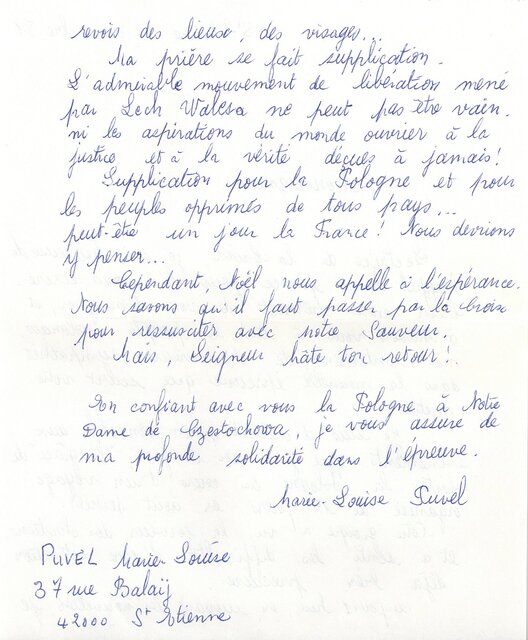 revois des lieux, des visages...
Ma prière se fait supplication.
L'admirable mouvement de libération mené
par Lech Walesa ne peut pas être vain,
ni les aspirations du monde ouvrier à la
justice et à la vérité déçues à jamais!
Supplication pour la Pologne et pour
les peuples opprimés de tous pays...
peut-être un jour la France! Nous devrions
y penser...
Cependant, Noël nous appelle à l'espérance.
Nous savons qu'il faut passer par la Croix
pour ressusciter avec notre Sauveur.
Mais, Seigneur hâte ton retour!
En confiant avec vous la Pologne à Notre
Dame de Czestochowa, je vous assure de
ma profonde solidarité dans l'épreuve.
Marie-Louise Puvel
PUVEL Marie-Louise
37 rue Balaÿ
42000 St Etienne